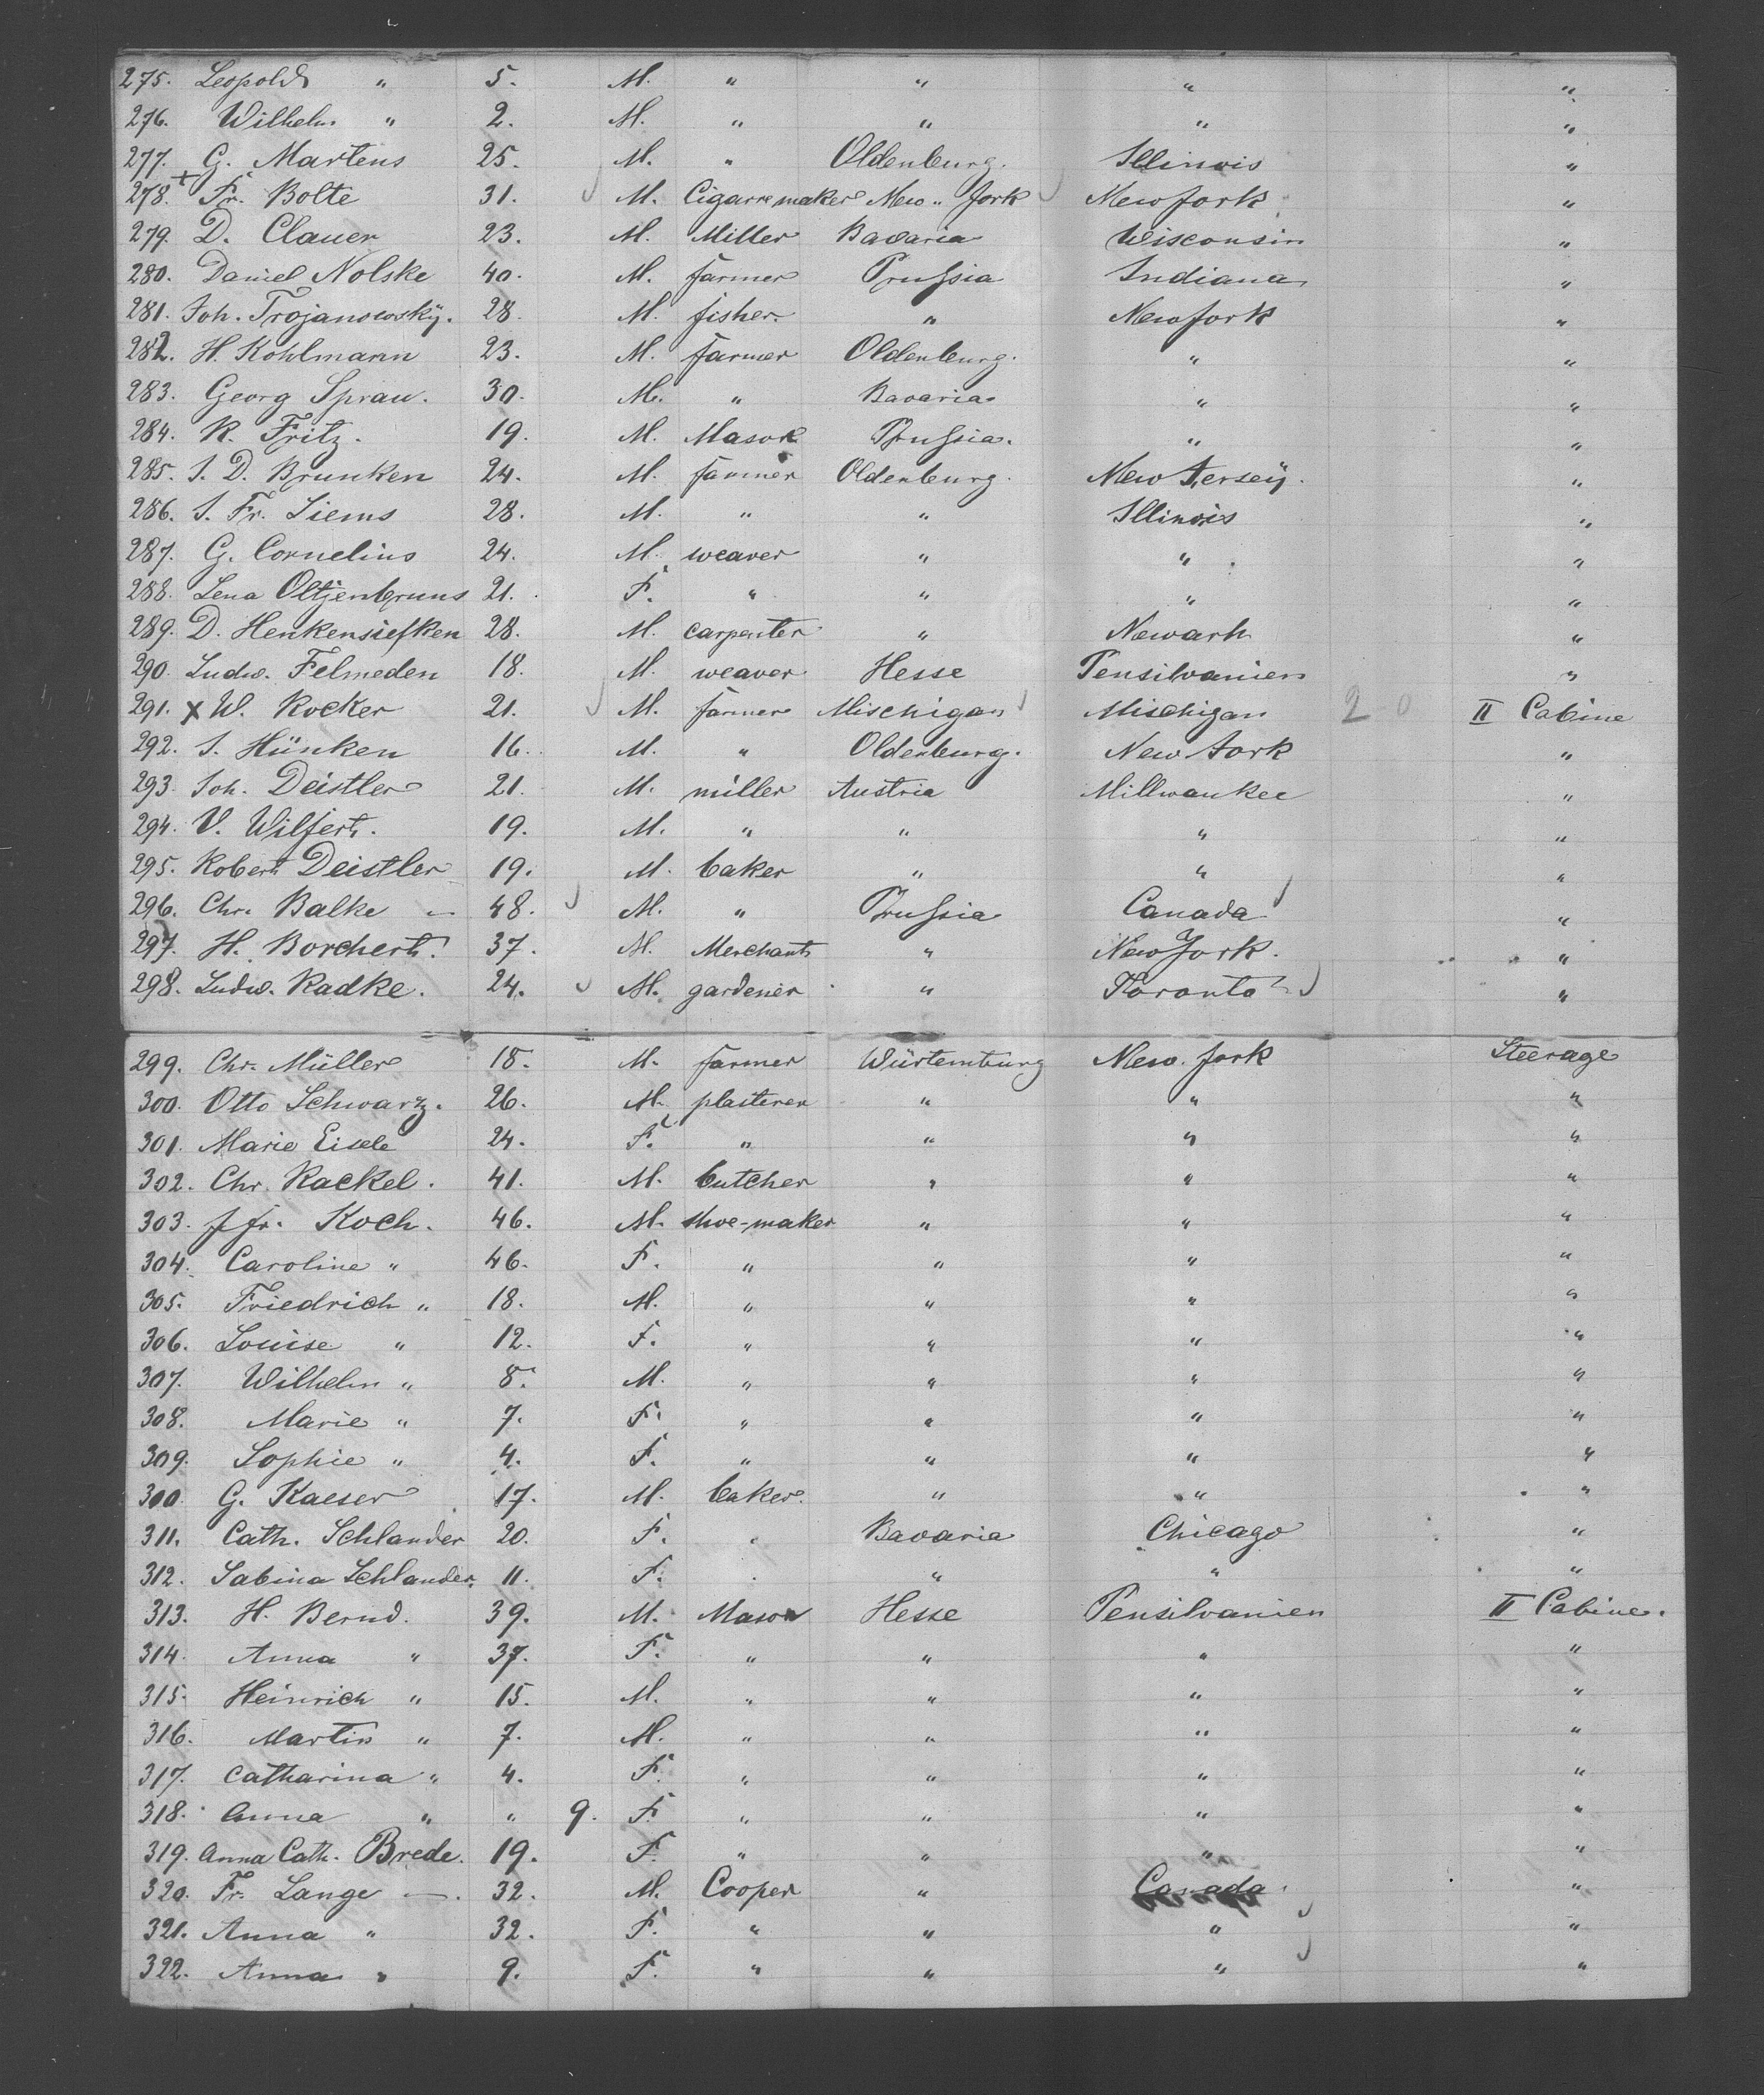 275. Leopold " 5. M. " " " "
276. Wilhelm " 2. M. " " " "
277. G. Martens 25. M. " Oldenburg. Illinois "
278. + Fr. Bolte 31. M. Cigarremaker New " York New York "
279. D. Clauer 23. M. Miller Bavaria Wisconsin "
280. Daniel Nolske 40. M. farmer Prussia Indiana "
281. Joh. Trojanowsky. 28. M. fisher. " New York "
282. H. Kohlmann 23. M. farmer Oldenburg. " "
283. Georg Sprau. 30. M. " Bavaria " "
284. R. Fritz. 19. M. Mason Prussia. " "
285. I. D. Brunken 24. M. farmer Oldenburg. New Jersey. "
286. I. Fr. Siems 28. M. " " Illinois "
287. G. Cornelius 24. M. weaver " " "
288. Lena Oltjenbruns 21. F. " " " "
289. D. Henkensiefken 28. M. carpenter " Newark "
290. Ludw. Felmeden 18. M. weaver Hesse Pensilvanien "
291. X W. Rocker 21. M. farmer Mischigan Mischigan 2 0 II Cabine
292. I. Hünken 16. M. " Oldenburg. New York "
293. Joh. Deistler 21. M. miller Austria Millwaukee "
294. V. Wilfert. 19. M. " " " "
295. Robert Deistler 19. M. baker " " "
296. Chr. Balke — 48. M. " Prussia Canada "
297. H. Borchert. 37. M. Merchant " New York. "
298. Ludw. Radke. 24. M. gardener " Toronto "
299. Chr. Müller 18. M. farmer Würtemburg New York Steerage
300. Otto Schwarz. 26. M. plasterer " " "
301. Marie Eisele 24. F. " " " "
302. Chr. Rackel. 41. M. butcher " " "
303. J fr. Koch. 46. M. shoe-maker " " "
304. Caroline " 46. F. " " " "
305. Friedrich " 18. M. " " " "
306. Louise " 12. F. " " " "
307. Wilhelm " 8. M. " " " "
308. Marie " 7. F. " " " "
309. Sophie " 4. F. " " " "
300. G. Kaeser 17. M. baker. " " "
311. Cath. Schlander 20. F. Bavaria Chicago "
312. Sabina Schlander. 11. F. " " "
313. H. Bernd. 39. M. Mason Hesse Pensilvanien II Cabine.
314. Anna " 37. F. " " " "
315. Heinrich " 15. M. " " " "
316. Martin " 7. M. " " " "
317. Catharina " 4. F. " " " "
318. Anna " " 9. F. " " " "
319. Anna Cath. Brede. 19. F. " " " "
320. Fr. Lange — 32. M. Cooper " Canada. "
321. Anna " 32. F. " " " "
322. Anna " 9. F. " " " "